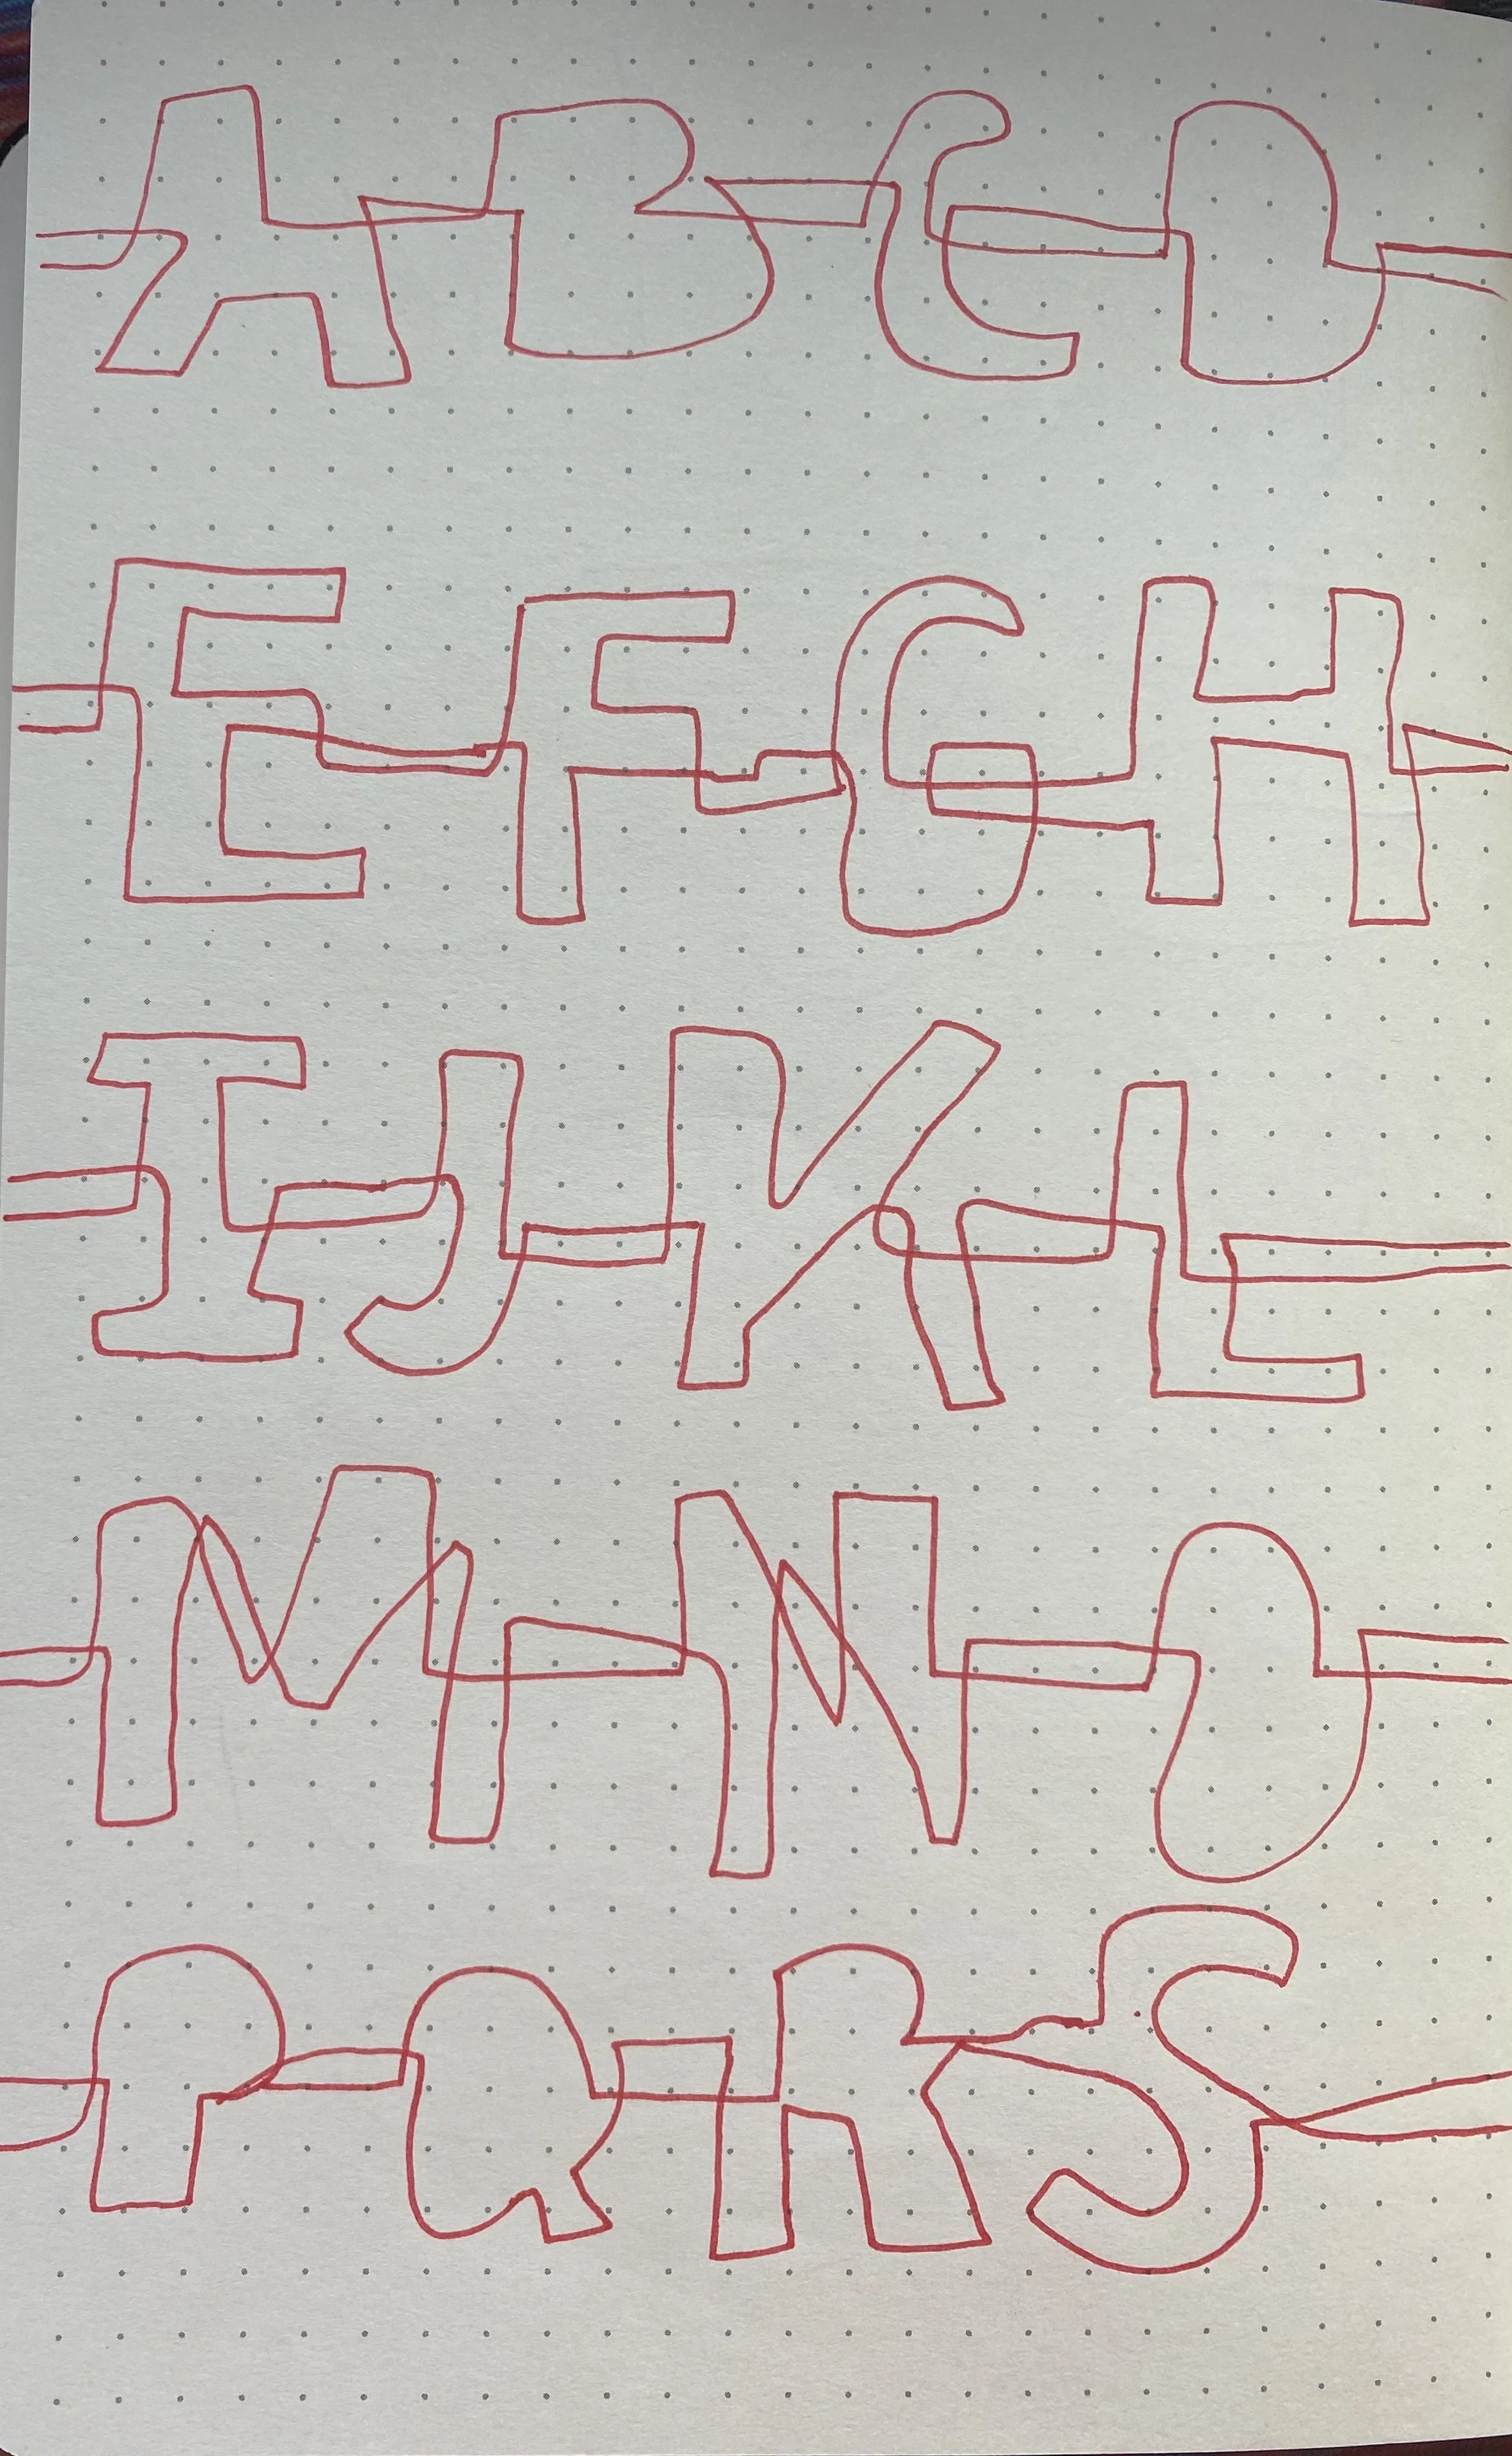 ABCD
EFGH
IJKL
MNO
PQRS